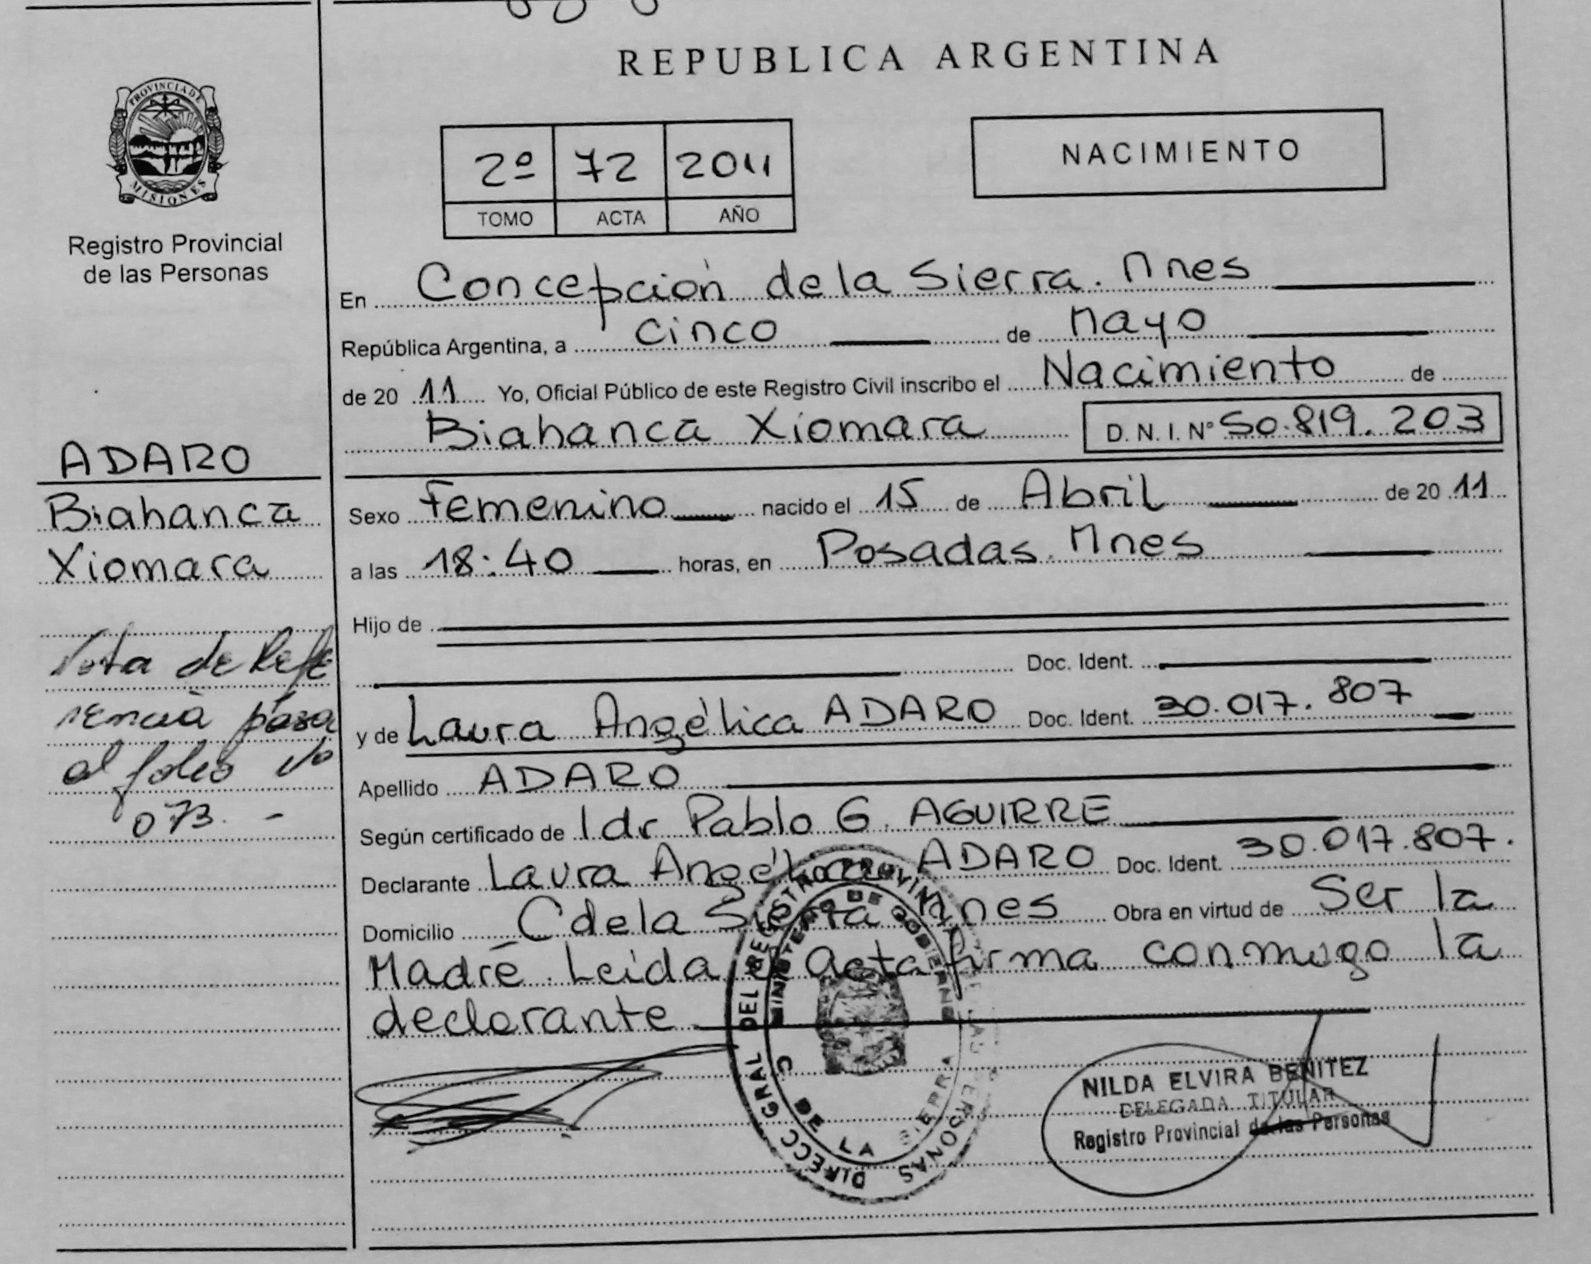 REPUBLICA ARGENTINA
PROVINCIA DE MISIONES
Registro Provincial
de las Personas
2º 72 2011
TOMO ACTA AÑO
NACIMIENTO
En Concepción de la Sierra. Mnes
República Argentina, a cinco de Mayo
de 20 11 Yo, Oficial Público de este Registro Civil inscribo el Nacimiento de
Biahanca Xiomara D. N. I. Nº 50.819.203
Sexo Femenino nacido el 15 de Abril de 20 11
a las 18:40 horas, en Posadas. Mnes
Hijo de
Doc. Ident.
y de Laura Angélica ADARO Doc. Ident. 30.017.807
Apellido ADARO
Según certificado de Pablo G. AGUIRRE
Declarante Laura Angélica ADARO Doc. Ident. 30.017.807.
Domicilio C de la Sierra Mnes Obra en virtud de Ser la
Madre. Leida el acta firma conmigo la
declarante
ADARO
Biahanca
Xiomara
Nota de Refe
rencia pasa
al folio Nº
073. -
DIRECC GRAL DEL REGISTRO PROVINCIAL DE LAS PERSONAS
MINISTERIO DE GOBIERNO
C DE LA SIERRA
NILDA ELVIRA BENITEZ
DELEGADA TITULAR
Registro Provincial de las Personas